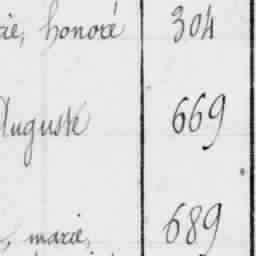 honoré 304
Auguste 669
marie, 689